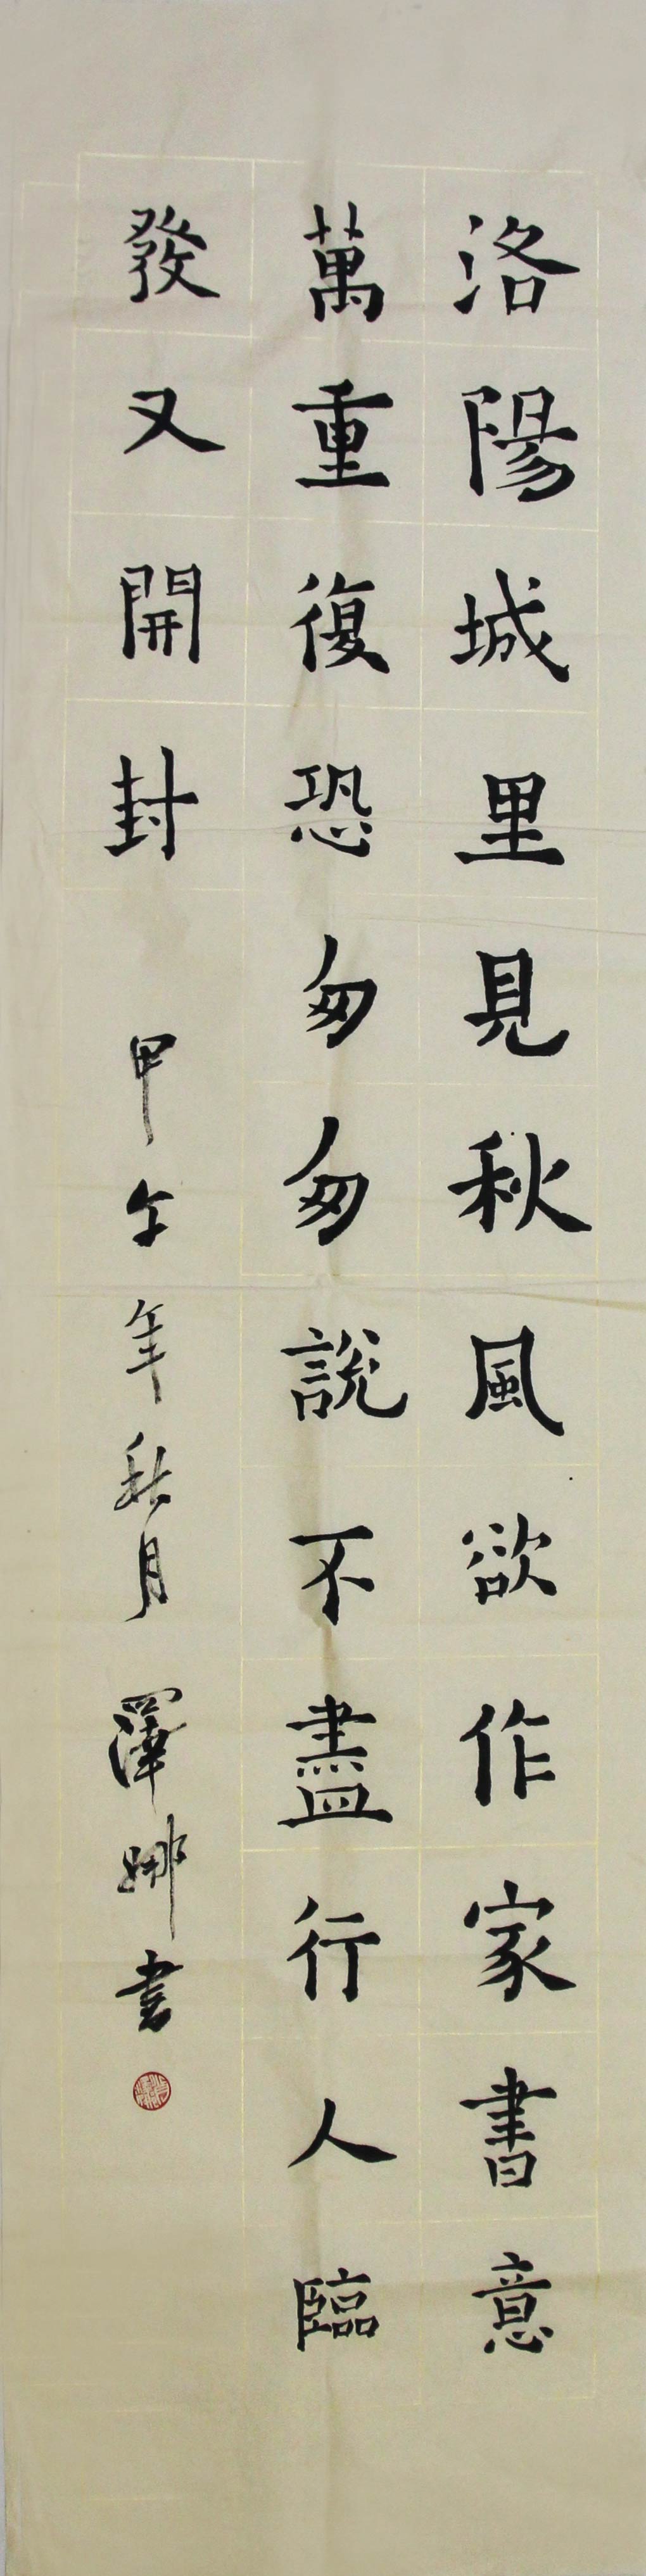 洛陽城里見秋風欲作家書意
萬重復恐匆匆說不盡行人臨
發又開封
甲午年秋月 澤娜書